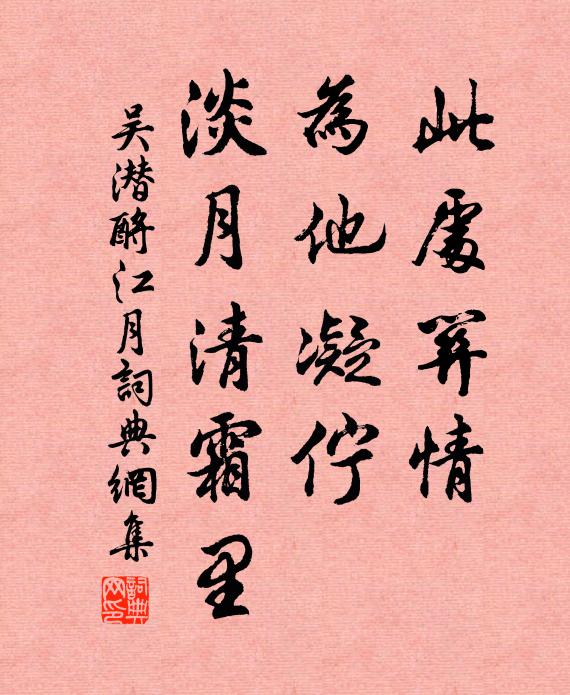 此處關情
為他凝佇
淡月清霜里
吳潛酹江月詞典網集
詞典網印